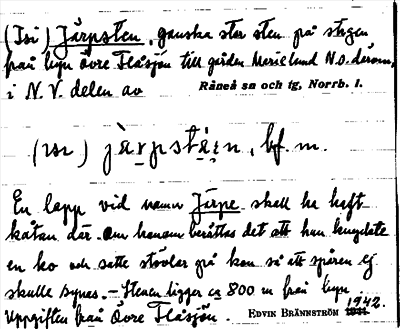 (Isi) Järpsten, ganska stor sten på stigen
från byn Övre Flåsjön till gården Marielund N.O. därom,
i N.V. delen av Råneå sn och tg, Norrb. l.
(ɪsi) jä̀rpstèn, bf. m.
En lapp vid namn Järpe skall ha haft
kåtan där. Om honom berättas det att han
en ko och satte stövlar på kon så att spåren ej
skulle synas. – Stenen ligger ca 800 m från byn.
Uppgiften från Övre Flåsjön. EDVIK BRÄNNSTRÖM 1942.